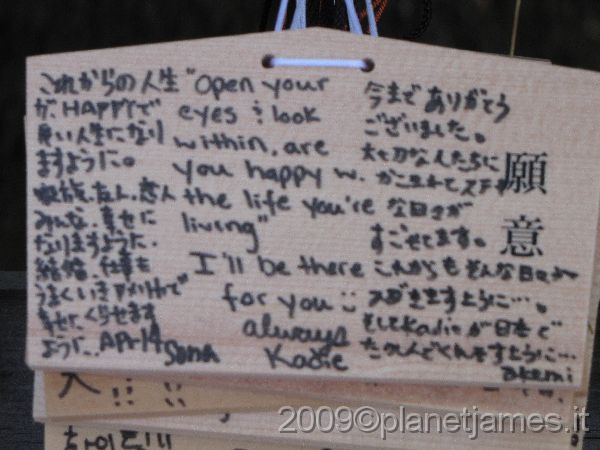 これからの人生
が、HAPPYで
良い人生になり
ますように。
家族、友人、恋人
みんな、幸せに
なりますように。
結婚、仕事も
うまくいきアメリカで
幸せにくらせます
ように… Apr 14
"Open your
eyes & look
within, are
you happy w.
the life you're
living"
I'll be there
for you
always
Sana
Kadie
今まで ありがとう
ございました。
大切な人たちに
かこまれてステキ
な日々が
すごせてます。
これからも そんな日々が
つづきますように…。
そしてKadieが日本で
願
意
2009©planetjames.it